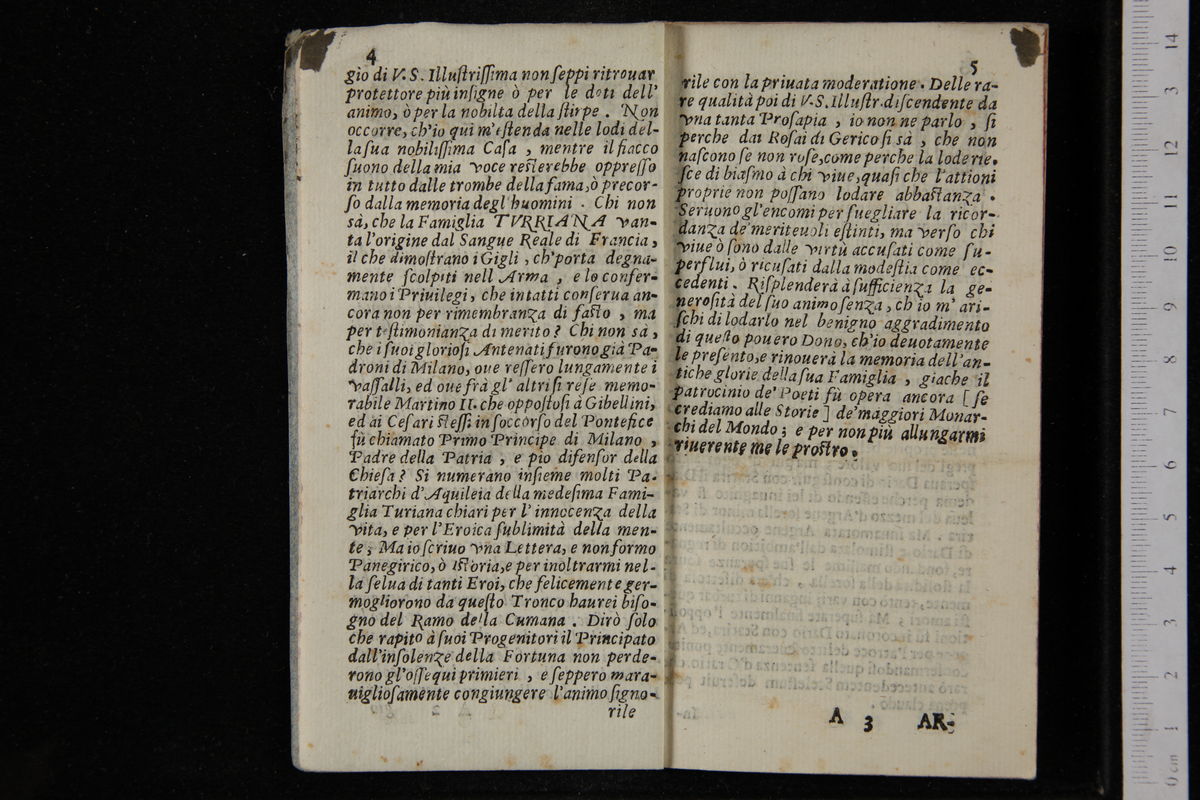 4
gio di V.S. Illuſtriſſima non ſeppi ritrouar
protettore più inſigne ò per le doti dell'
animo, ò per la nobilta della ſtirpe. Non
occorre, ch'io qui m'eſtenda nelle lodi del-
la ſua nobiliſſima Caſa, mentre il fiacco
ſuono della mia voce reſterebbe oppreſſo
in tutto dalle trombe della fama, ò precor-
ſo dalla memoria degl'huomini. Chi non
sà, che la Famiglia TVRRIANA van-
ta l'origine dal Sangue Reale di Francia,
il che dimoſtrano i Gigli, ch'porta degna-
mente ſcolpiti nell Arma, e lo confer-
mano i Priuilegi, che intatti conſerua an-
cora non per rimembranza di faſto, ma
per teſtimonianza di merito? Chi non sà,
che i ſuoi glorioſi Antenati furono già Pa-
droni di Milano, oue reſſero lungamente i
vaſſalli, ed oue frà gl'altri ſi reſe memo-
rabile Martino II. che oppoſtoſi à Gibellini,
ed ai Ceſari ſteſſi in ſoccorſo del Pontefice
fù chiamato Primo Principe di Milano,
Padre della Patria, e pio difenſor della
Chieſa? Si numerano inſieme molti Pa-
triarchi d'Aquileia della medeſima Fami-
glia Turiana chiari per l'innocenza della
vita, e per l'Eroica ſublimità della men-
te; Ma io ſcriuo vna Lettera, e non formo
Panegirico, ò Iſtoria, e per inoltrarmi nel-
la ſelua di tanti Eroi, che felicemente ger-
mogliorono da queſto Tronco haurei biſo-
gno del Ramo della Cumana. Dirò ſolo
che rapito à ſuoi Progenitori il Principato
dall'inſolenze della Fortuna non perde-
rono gl'oſſequi primieri, e ſeppero mara-
uiglioſamente congiungere l'animo ſigno-
rile
5
rile con la priuata moderatione. Delle ra-
re qualità poi di V.S. Illuſtr. diſcendente da
vna tanta Proſapia, io non ne parlo, ſi
perche dai Roſai di Gerico ſi sà, che non
naſcono ſe non roſe, come perche la lode rie-
ſce di biaſmo à chi viue, quaſi che l'attioni
proprie non poſſano lodare abbaſtanza.
Seruono gl'encomi per ſuegliare la ricor-
danza de' meriteuoli eſtinti, ma verſo chi
viue ò ſono dalle virtù accuſati come ſu-
perflui, ò ricuſati dalla modeſtia come ec-
cedenti. Riſplenderà à ſufficienza la ge-
neroſità del ſuo animo ſenza, ch'io m'ari-
ſchi di lodarlo nel benigno aggradimento
di queſto pouero Dono, ch'io deuotamente
le preſento, e rinouerà la memoria dell'an-
tiche glorie della ſua Famiglia, giache il
patrocinio de' Poeti fù opera ancora [ſe
crediamo alle Storie] de' maggiori Monar-
chi del Mondo; e per non più allungarmi
riuerente me le proſtro.
A 3 AR-